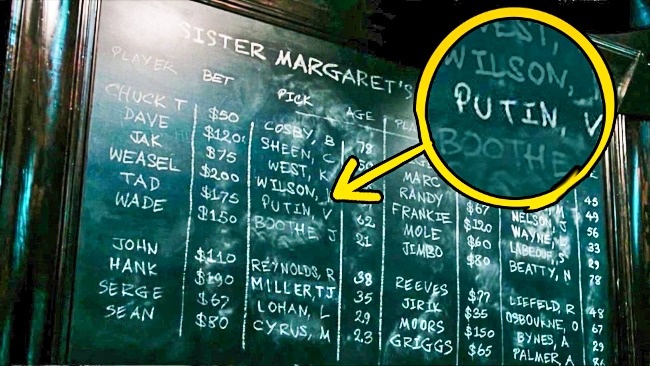 SISTER MARGARET'S
PLAYER BET PICK AGE
CHUCK T $50 COSBY, B 78
DAVE $120 SHEEN, C 50
JAK $75 WEST, K
WEASEL $200 WILSON,
TAD $175 PUTIN, V 62
WADE $150 BOOTHE J 21
JOHN $110 REYNOLDS, R 38
HANK $190 MILLER, TJ 35
SERGE $67 LOHAN, L 29
SEAN $80 CYRUS, M 23
MARC 49
RANDY $67 NELSON, J 56
FRANKIE $120 WAYNE, L 33
MOLE $60 LABEOUF, S 29
JIMBO $80 BEATTY, N 78
REEVES $77 LIEFELD, R 48
JIRIK $35 OSBOURNE, O 67
MOORS $150 BYNES, A 29
GRIGGS $65 PALMER, A
WEST,
WILSON,
PUTIN, V
BOOTHE